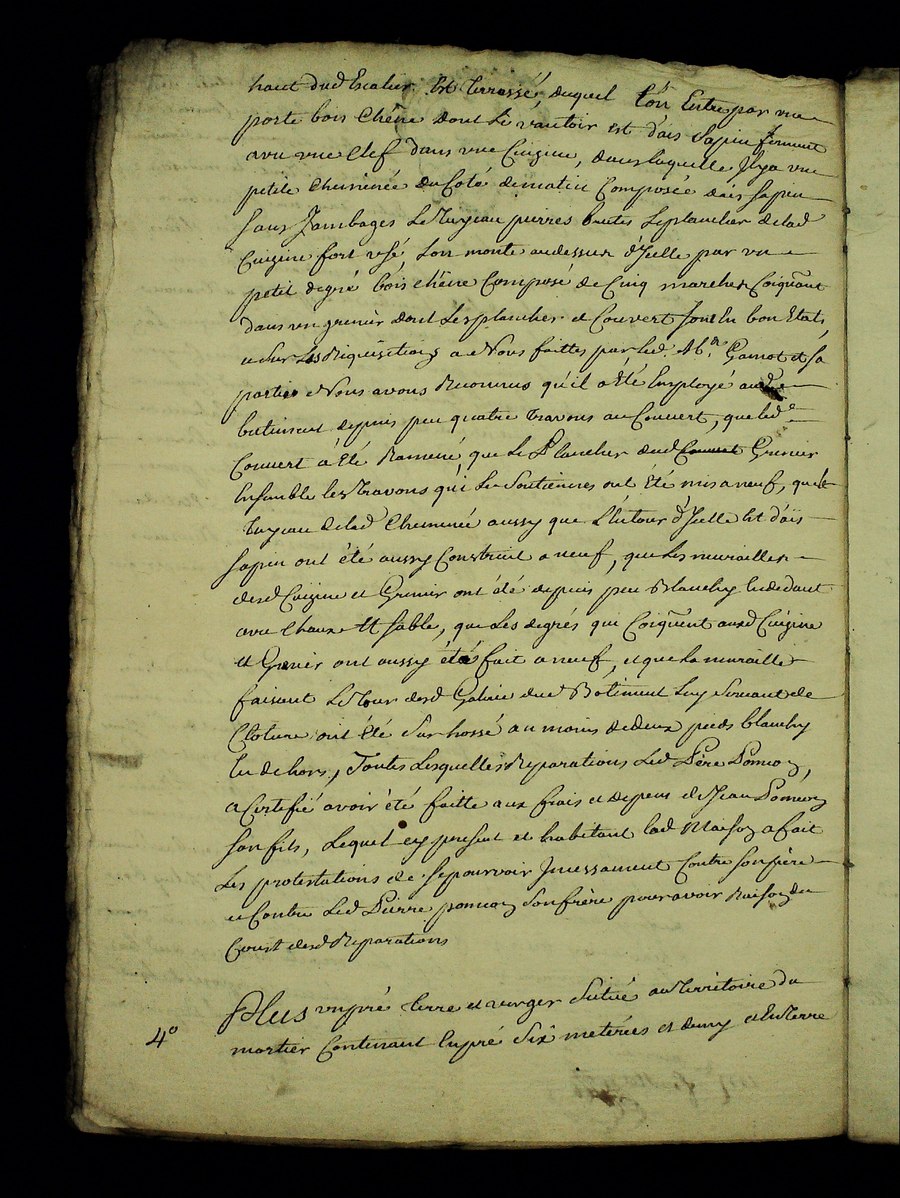 haut dud Escalier Est terrassé duquel l'on Entre par une
porte bois chêne dont le vantoir est d'ais Sapin fermant
avec une Clef dans une Cuizine, dans laquelle Il y a une
petite cheminée du Coté de matin Composée d'ais sapin
sans Jambages le Tuyeau pierres brutes le plancher de lad
Cuizine fort usé, l'on monte au dessus d'Icelle par un
petit degré bois chêne Composé de Cinq marches
dans un grenier dont les plancher et Couvert sont En bon Etats,
et sur les Requisitions a Nous faittes par led. Garnot et sa
partie Nous avons Reconnus qu'il a Eté Employé
batiment depuis peu quatre travons au Couvert, que led
Couvert a Eté Ramené, que le Plancher dud Grenier
Ensemble les travons qui le Soutiennes ont Eté mis a neuf, que le
Tuyeau de lad Cheminée aussy que l'Entour d'Icelle Est d'ais
sapin ont été aussy Construit a neuf, que les murailles
desd Cuizine et Grenier ont été depuis peu Blanchy En dedant
avec chaux Et sable, que les degrés qui auxd Cuizine
Et Grenier ont aussy étés fait a neuf, et que la muraille
faisant le Tour desd Galerie dud Bâtiment luy servant de
Cloture ont Eté Surhossé au moins de deux pieds blanchy
En dehors, Toutes lesquelles Reparations led Père
a Certifié avoir été faitte aux frais et depens de Jean
son fils, lequel cy present et habitant lad Maison a fait
les protestations de se pourvoir Incessament Contre son père
et Contre led Pierre son frère pour avoir Raison du
Coust desd Reparations
4º
Plus un pré terre et verger Situé au Territoire du
mortier Contenant En pré Six meterées et demy et En Terre